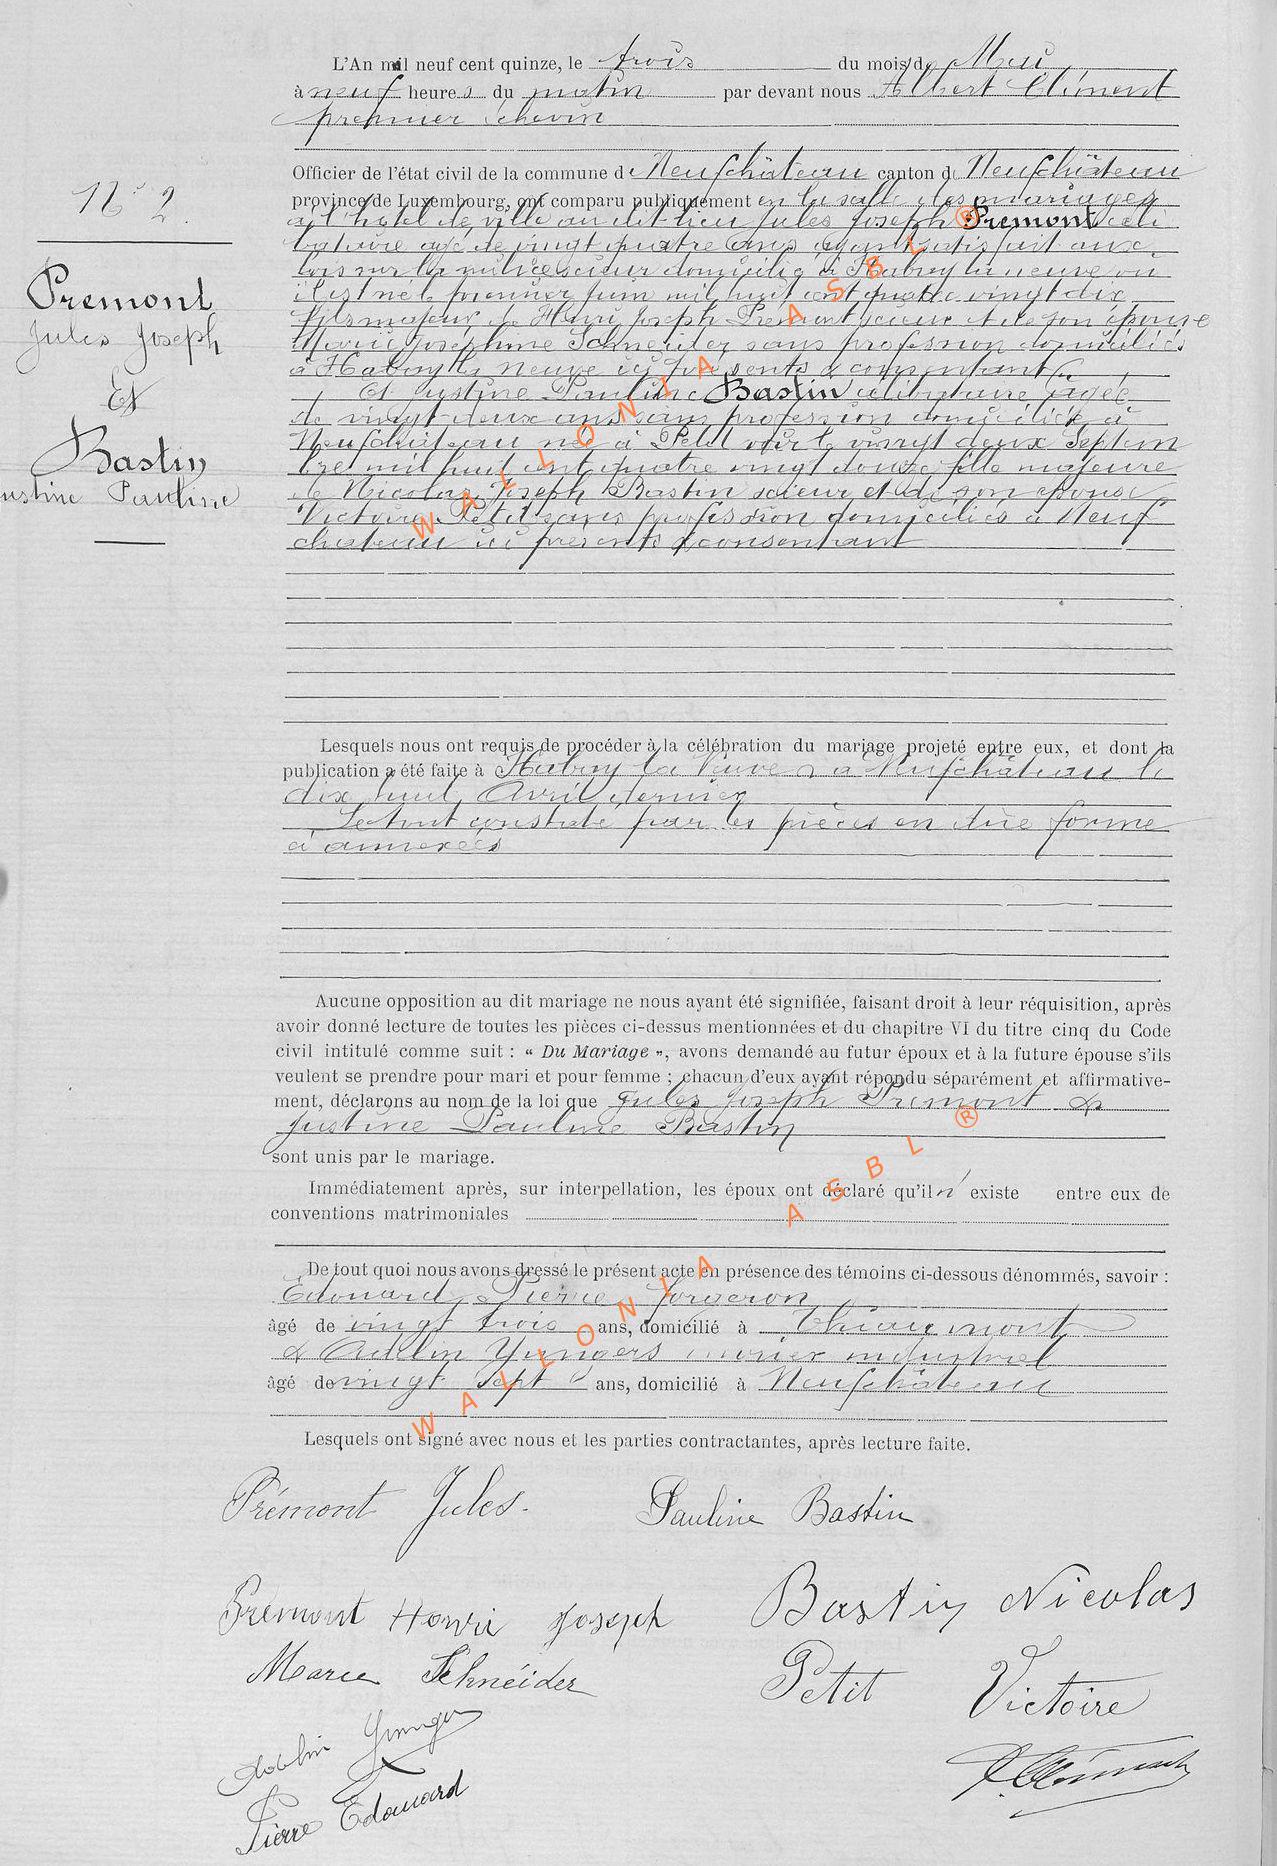 L'An mil neuf cent quinze, le trois du mois de Mai
à neuf heures du matin par devant nous Albert Clément
premier échevin
Officier de l'état civil de la commune de Neufchâteau canton de Neufchâteau
province de Luxembourg, ont comparu publiquement en la salle des mariages
à l'hôtel de ville au dit lieu Jules Joseph Premont céli
bataire agé de vingt quatre ans ayant satisfait aux
lois sur la milice scieur domicilié à Habay la neuve où
il est né le premier juin mil huit cent quatre vingt dix
fils majeur de Henri Joseph Prémont scieur et de son épouse
Marie Joséphine Schneider sans profession domiciliés
à Habay la neuve ici présents & consentants
Et Justine Pauline Bastin célibataire agée
de vingt deux ans sans profession domiciliée à
Neufchâteau née à Petit voir le vingt deux Septem
bre mil huit cent quatre vingt douze fille majeure
de Nicolas Joseph Bastin scieur et de son épouse
Victoire Petit sans profession domiciliés à Neuf
chateau ici présents & consentant
N° 2.
Premont
Jules Joseph
Et
Bastin
ustine Pauline
Lesquels nous ont requis de procéder à la célébration du mariage projeté entre eux, et dont la
publication a été faite à Habay la Neuve & à Neufchâteau le
dix huit Avril dernier
Le tout constaté par les pièces en due forme
ci annexées
Aucune opposition au dit mariage ne nous ayant été signifiée, faisant droit à leur réquisition, après
avoir donné lecture de toutes les pièces ci-dessus mentionnées et du chapitre VI du titre cinq du Code
civil intitulé comme suit : « Du Mariage », avons demandé au futur époux et à la future épouse s'ils
veulent se prendre pour mari et pour femme ; chacun d'eux ayant répondu séparément et affirmative-
ment, déclarons au nom de la loi que Jules Joseph Premont &
Justine Pauline Bastin
sont unis par le mariage.
Immédiatement après, sur interpellation, les époux ont déclaré qu'il n'existe entre eux de
conventions matrimoniales
De tout quoi nous avons dressé le présent acte en présence des témoins ci-dessous dénommés, savoir :
Edouard Pierre forgeron
âgé de vingt trois ans, domicilié à Thiaumont
& Adelin Yungers ouvrier industriel
âgé de vingt sept ans, domicilié à Neufchâteau
Lesquels ont signé avec nous et les parties contractantes, après lecture faite.
Prémont Jules. Pauline Bastin
Premont Henri Joseph Bastin Nicolas
Marie Schnéider Petit Victoire
Adelin Yunger
Pierre Edouard
A. Clément
WALLONIA ASBL ®
WALLONIA ASBL ®